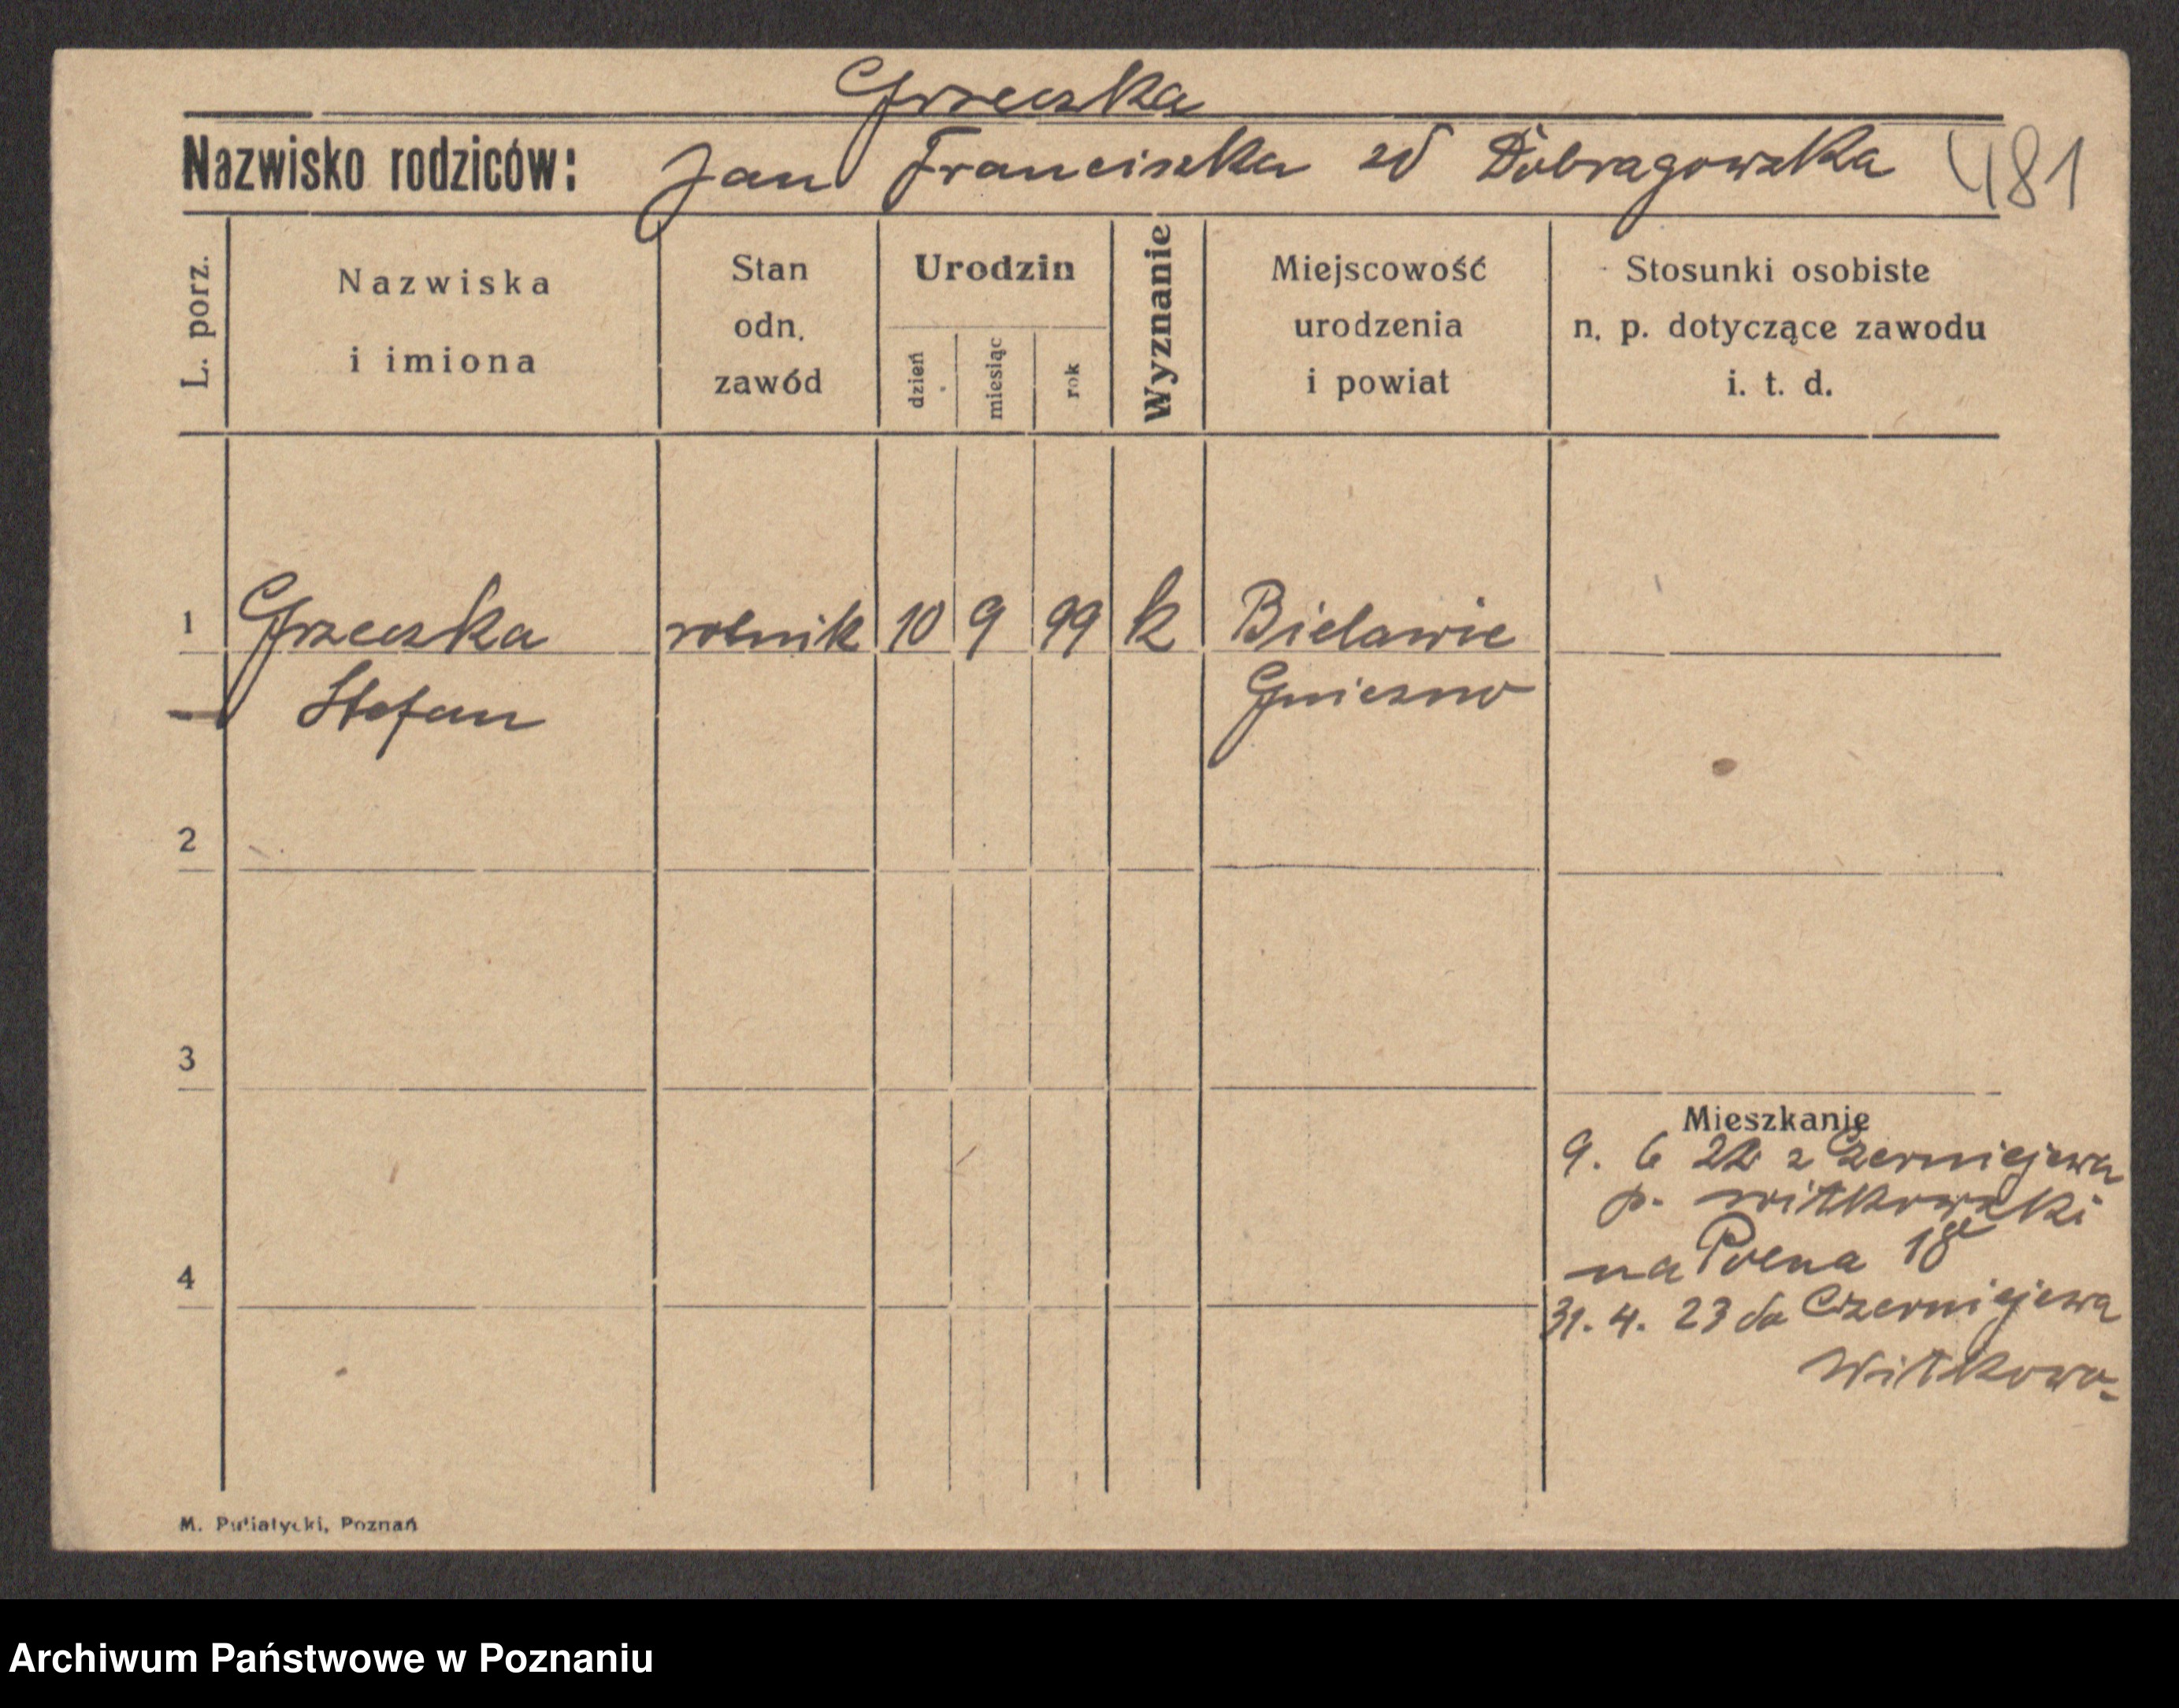 Grzeczka
Nazwisko rodziców: Jan Franciszka zd Dobragowska 481
L. porz.
Nazwiska
i imiona
Stan
odn.
zawód
Urodzin
dzień
miesiąc
rok
Wyznanie
Miejscowość
urodzenia
i powiat
Stosunki osobiste
n. p. dotyczące zawodu
i. t. d.
1 Grzeczka rolnik 10 9 99 k Bielawie
Stefan Gniezno
2
3
Mieszkanie
9. 6 22 z Czerniejewa
p. witkowski
na Polna 18
4
31. 4. 23 do Czerniejewa
Witkowo
M. Poznań
Archiwum Państwowe w Poznaniu